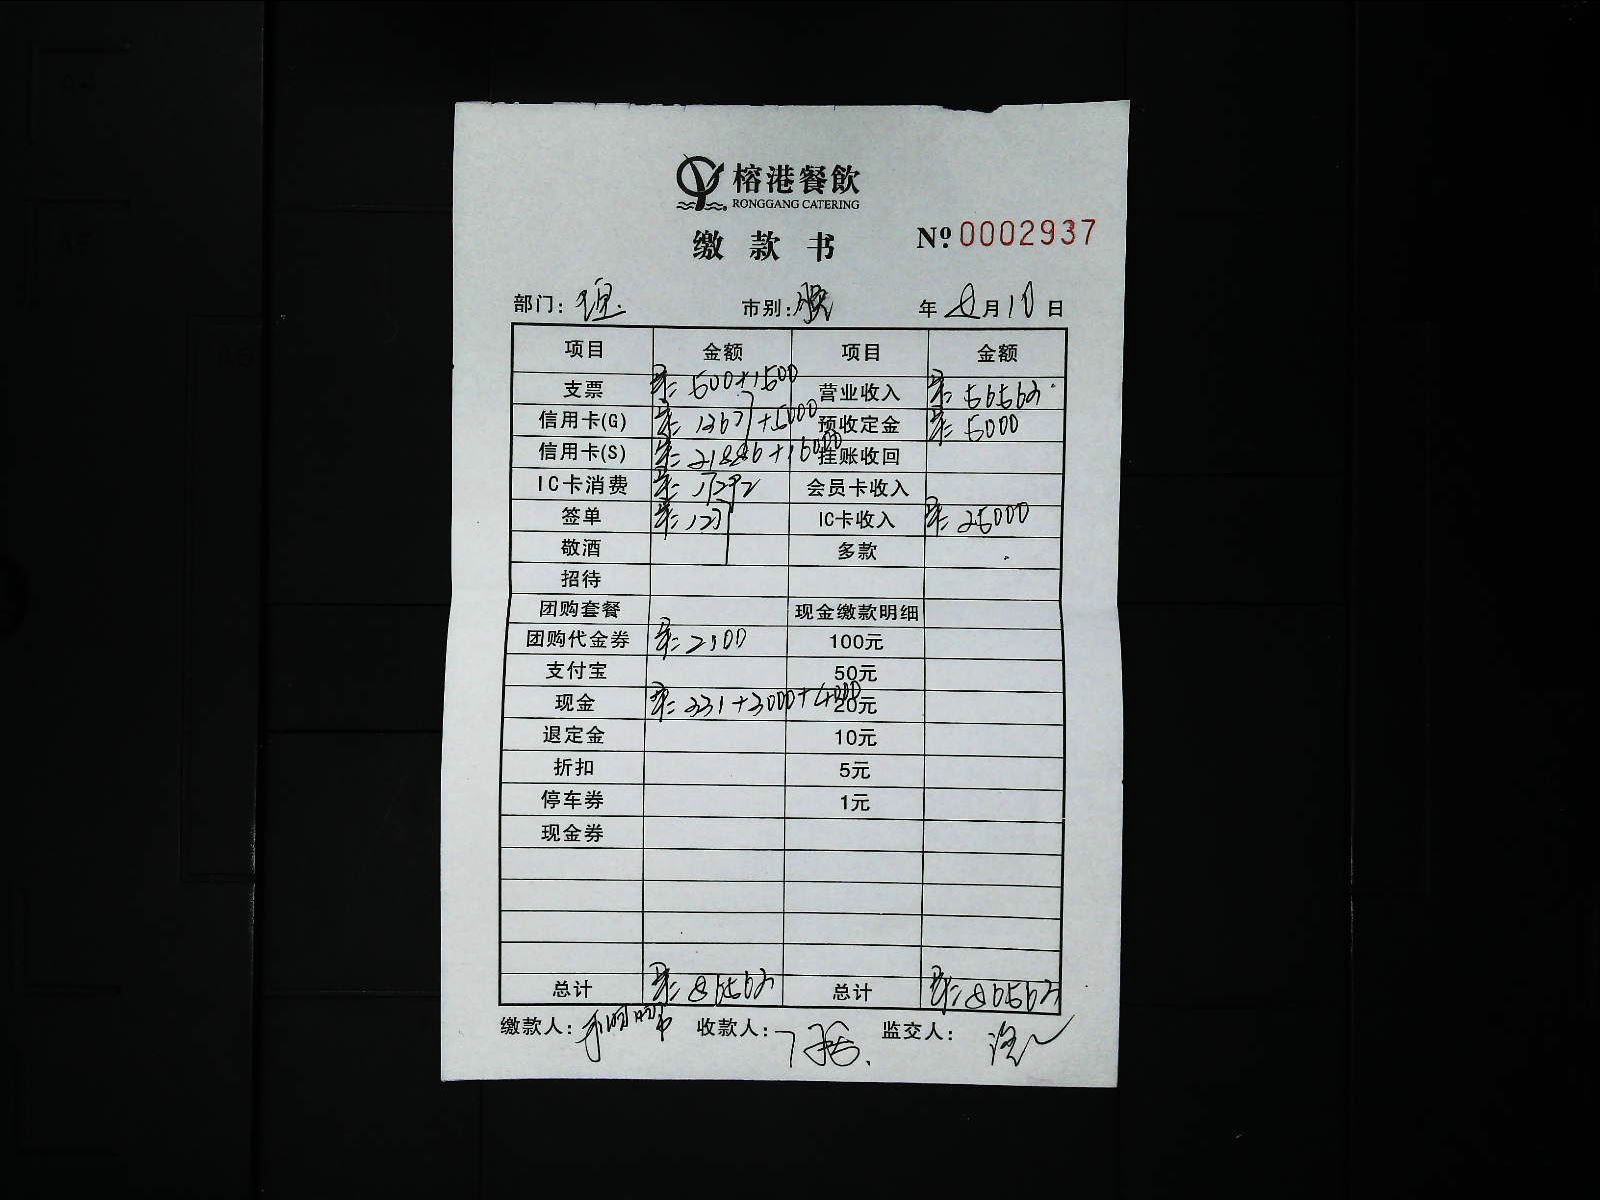 榕港餐飲
RONGGANG CATERING
缴款书
№ 0002937
部门: 市别: 年 月 10 日
项目 金额 项目 金额
支票 500+1500 营业收入
信用卡(G) 预收定金 5000
信用卡(S) 挂账收回
IC卡消费 会员卡收入
签单 IC卡收入 25000
敬酒 多款
招待
团购套餐 现金缴款明细
团购代金券 100元
支付宝 50元
现金 331+3000+4000 20元
退定金 10元
折扣 5元
停车券 1元
现金券
总计 总计
缴款人: 收款人: 监交人: